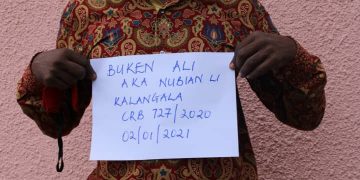 BUKEN ALI
AKA NUBIAN LI
KALANGALA
CRB 727/2020
02/01/2021